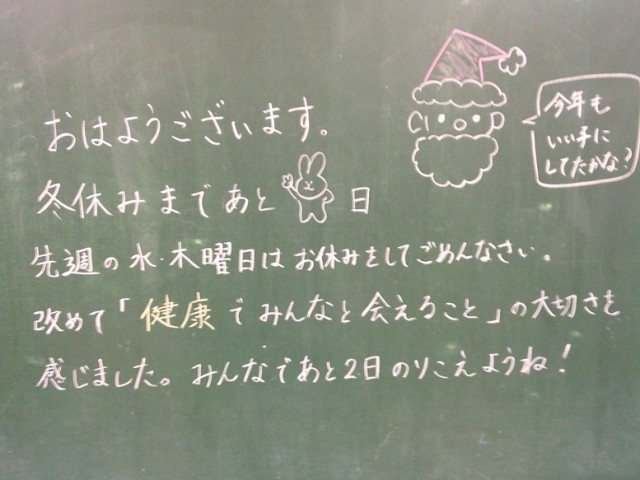 おはようございます。
冬休みまであと 日
先週の水・木曜日はお休みをしてごめんなさい。
改めて「健康でみんなと会えること」の大切さを
感じました。みんなであと2日のりこえようね!
今年も
いい子に
してたかな?